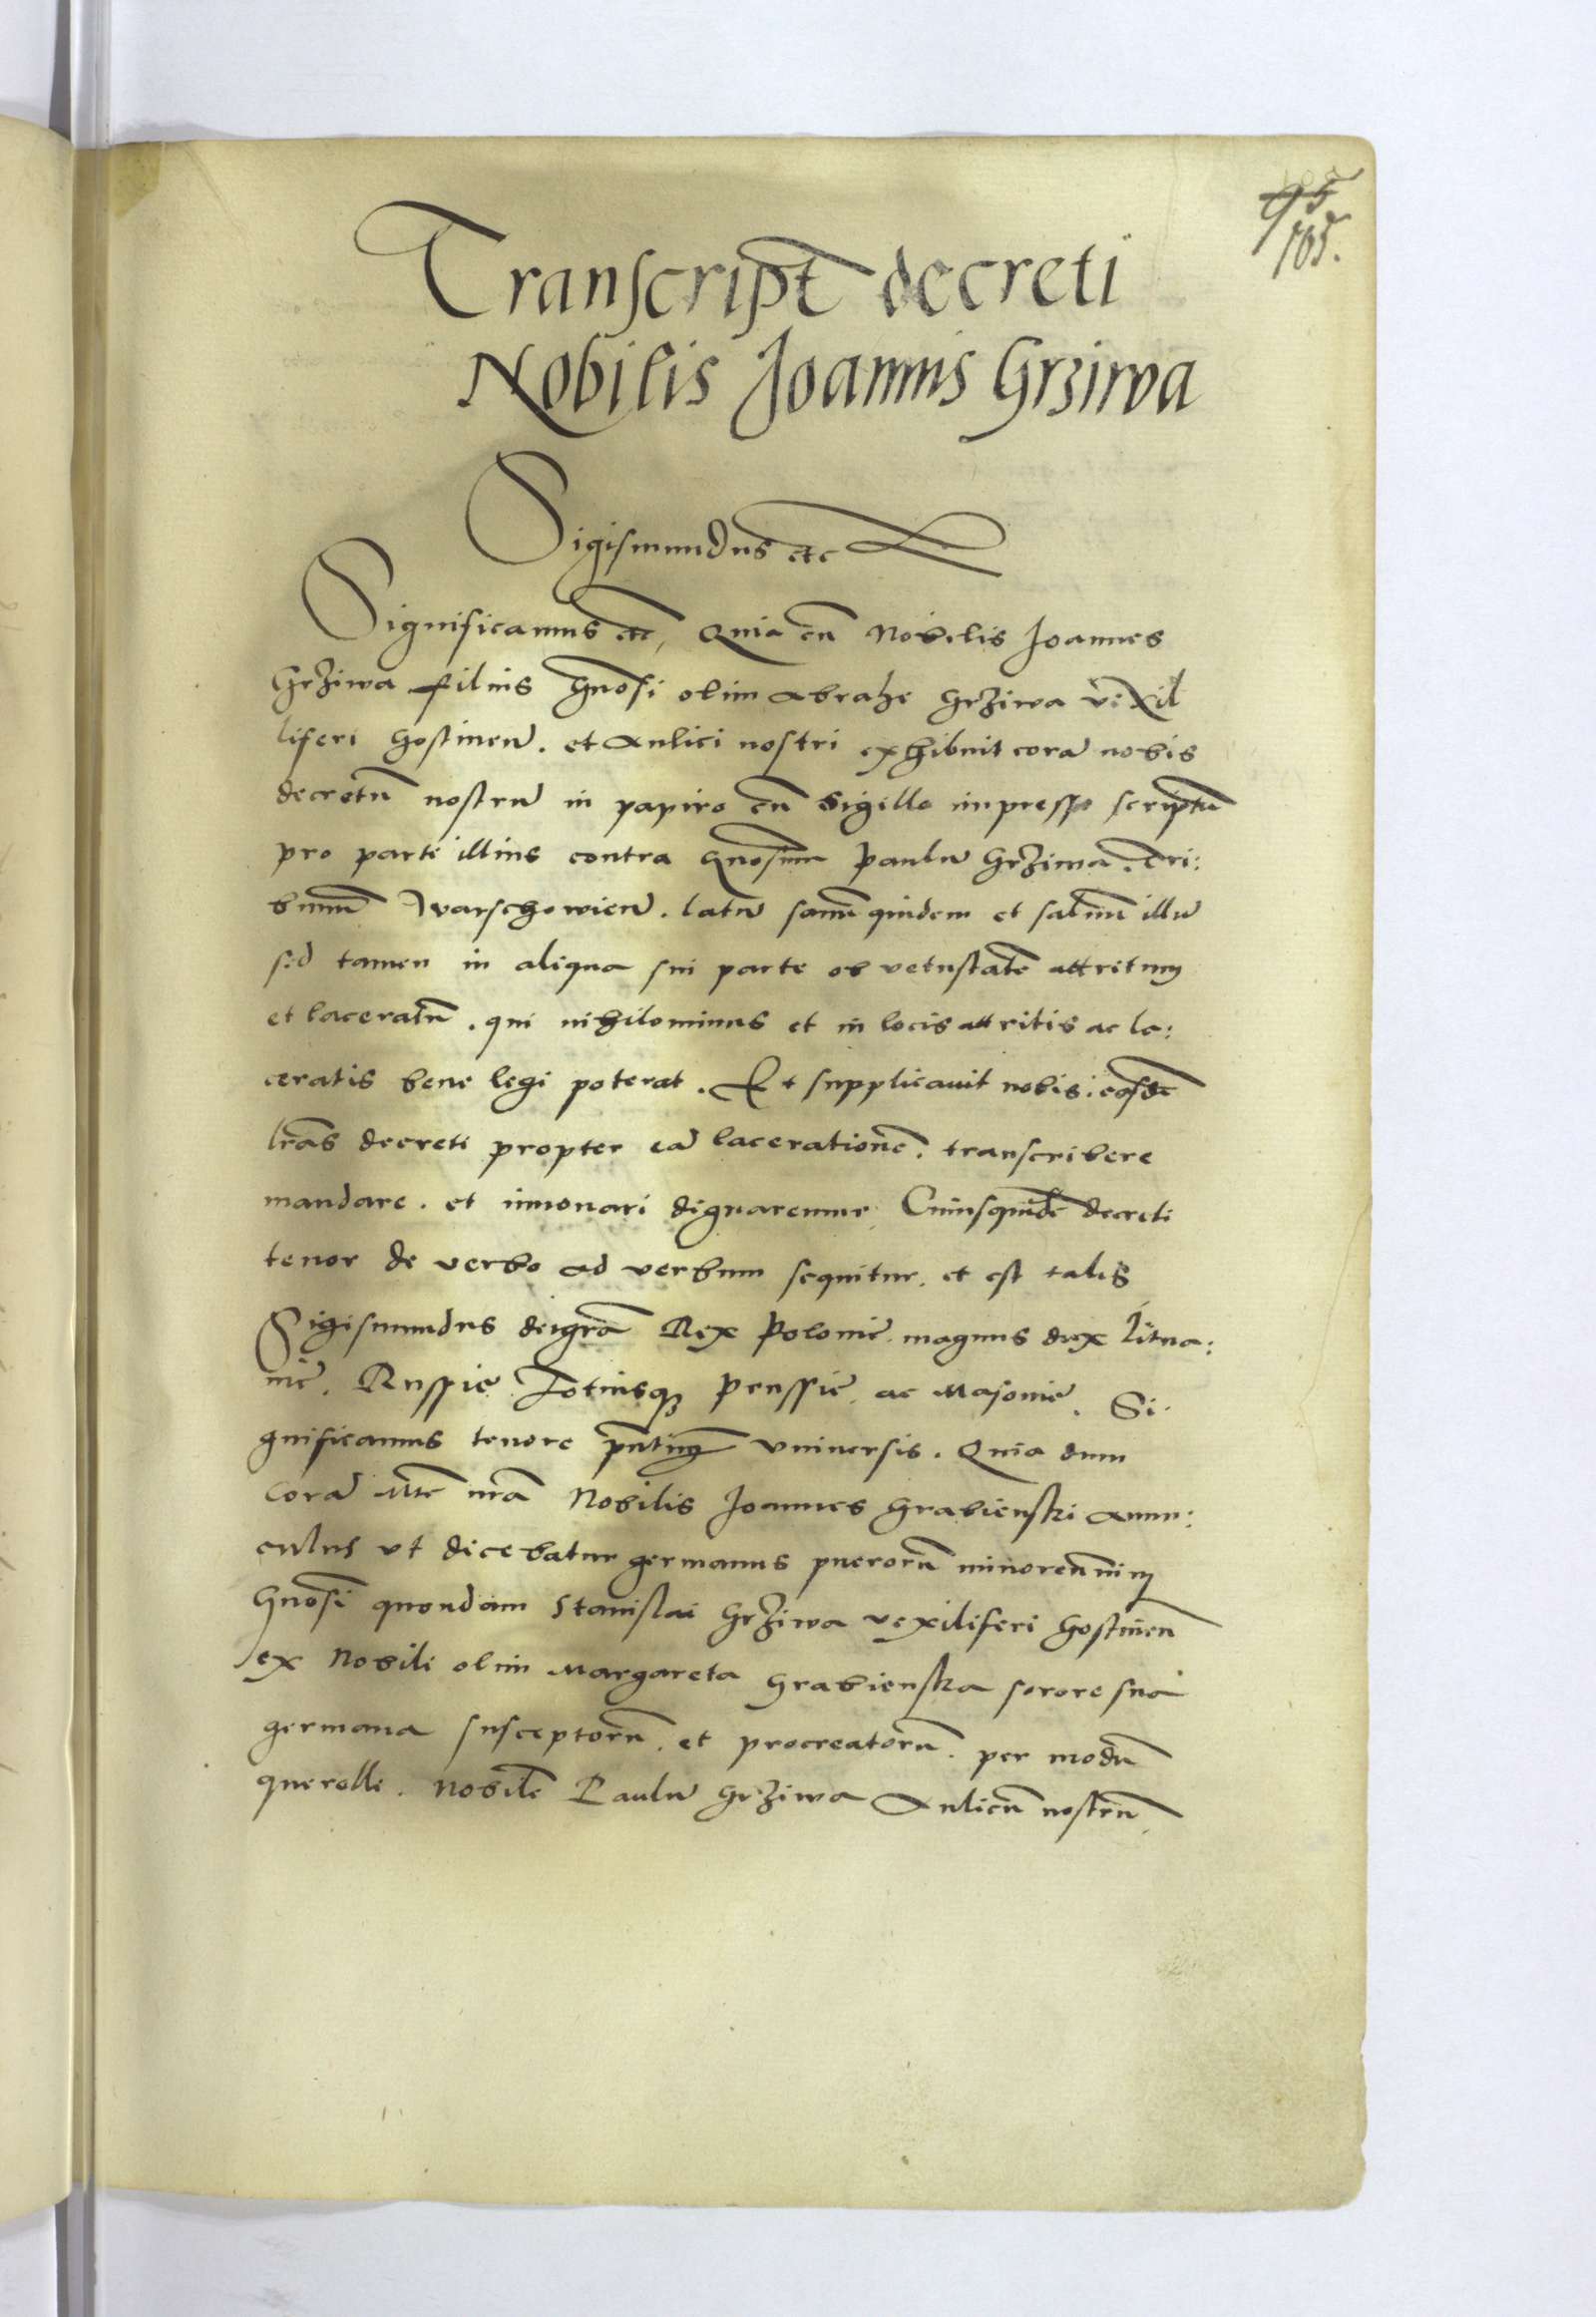 95
105.
Transcript̄ decreti
Nobilis Joannis Grziwa
Sigismundus etc
Significamus etc, Quia cū Nobilis Joannes
Grziwa filius Gnosī olim Abrahe Grziwa vexil
liferi Gostineñ. et Aulici nostri exhibuit corā nobis
decretū nostrū in papiro cū Sigillo impresso scriptū
pro parte illius contra Gnosum̄ Paulū Grziwa. Tri:
bunū Warschowieñ. latū sanū quidem et saluū illū
sed tamen in aliqua sui parte ob vetustatē attritum
et laceratū. qui nihilominus et in locis attritis ac la:
ceratis bene legi poterat. Et supplicauit nobis. easdē
lrās decreti propter eā lacerationē. transcribere
mandare. et innouari dignaremur. Cuiusquidē decreti
tenor de verbo ad verbum sequitur. et est talis
Sigismundus dei grā Rex Polonie. magnus dux Litua:
nie. Russie. Totiusq; Prussie. ac Masouie. Si:
gnificamus tenore pñtium vniuersis. Quia dum
Corā Mte nrā Nobilis Joannes Grabienski Auun:
culus vt dicebatur germanus puerorū minorennium
Gnosī quondam Stanislai Grziwa vexiliferi Gostineñ
ex Nobili olim Margareta Grabienska sorore sua
germana susceptorū. et procreatorū. per modū
querelle. Nobilē Paulū Grziwa Aulicū nostrū.